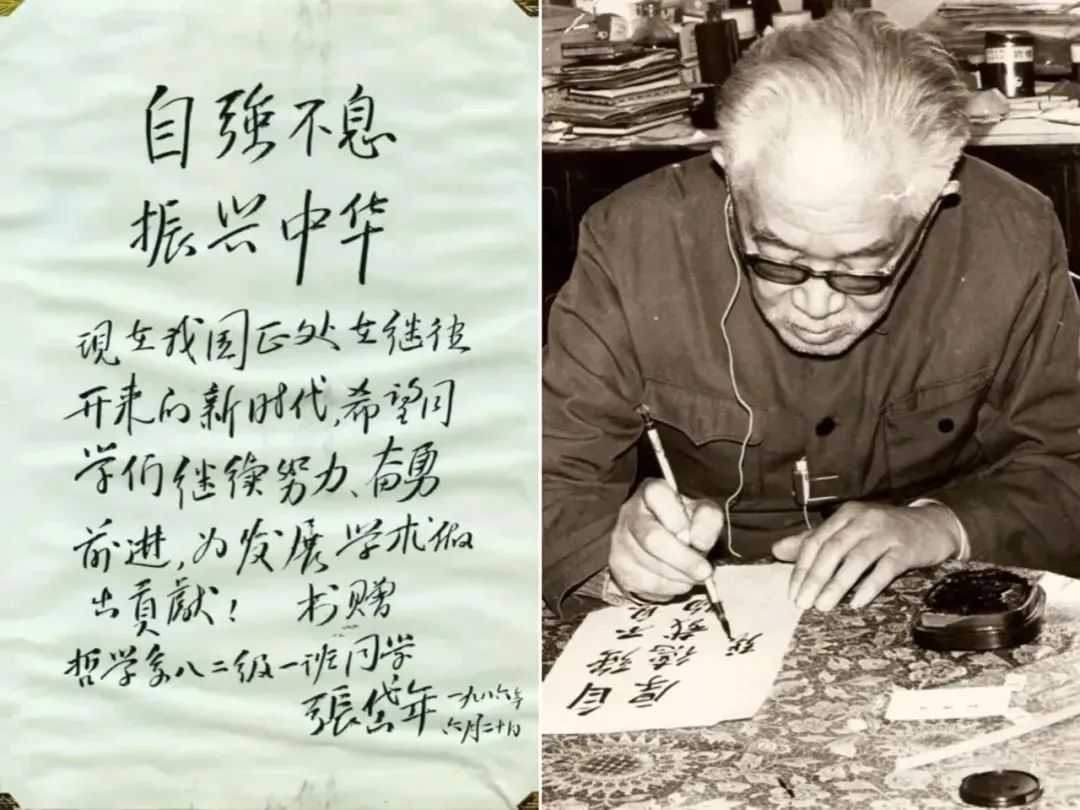 自強不息
振兴中华
现在我国正处在继往
开来的新时代,希望同
学们继续努力、奋勇
前进,为发展学术做
出貢獻! 书赠
哲学系八二级一班同学
張岱年 一九八六年
六月二十日
自強不息
厚德載物